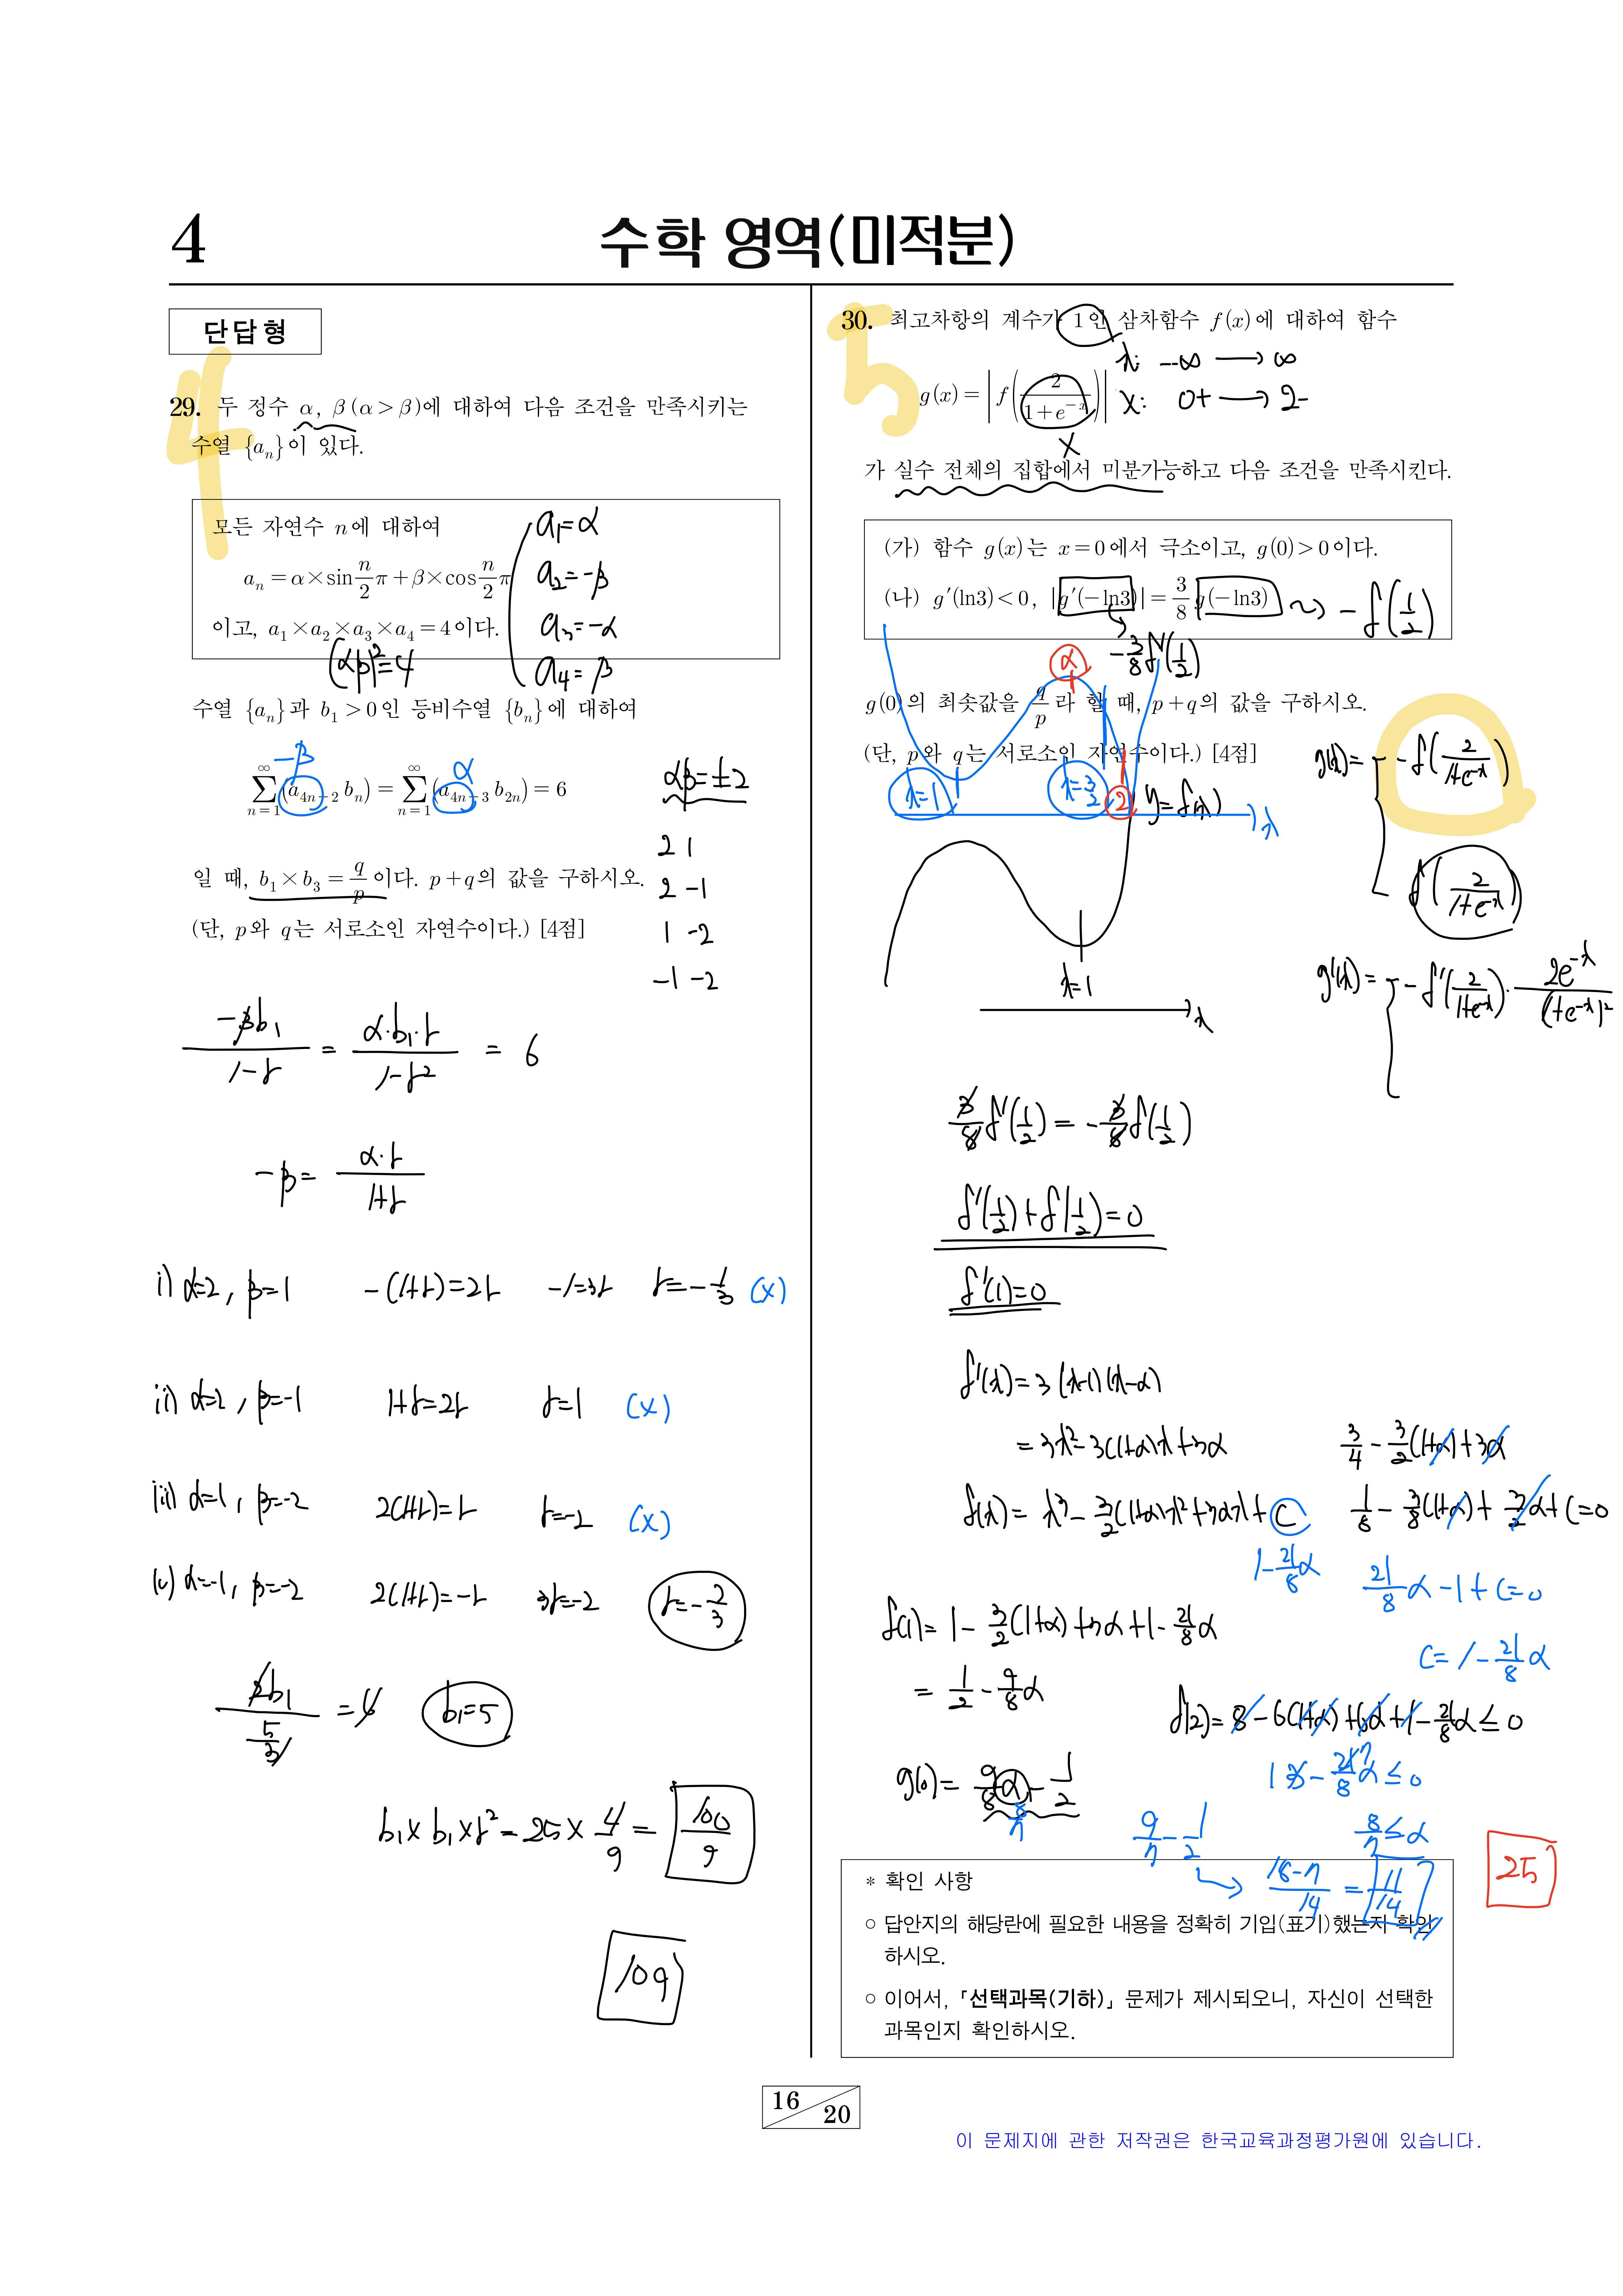 4
수학 영역(미적분)
단답형
4
29. 두 정수 α, β(α>β)에 대하여 다음 조건을 만족시키는
수열 {aₙ}이 있다.
모든 자연수 n에 대하여
aₙ = α×sin(n/2)π + β×cos(n/2)π
이고, a₁×a₂×a₃×a₄=4이다.
a₁=α
a₂=-β
a₃=-α
a₄=β
(αβ)²=4
수열 {aₙ}과 b₁>0인 등비수열 {bₙ}에 대하여
-β
α
∑_{n=1}^{∞}(a₄ₙ₋₂ bₙ) = ∑_{n=1}^{∞}(a₄ₙ₋₃ b₂ₙ) = 6
αβ=±2
2 1
2 -1
1 -2
-1 -2
일 때, b₁×b₃ = q/p 이다. p+q의 값을 구하시오.
(단, p와 q는 서로소인 자연수이다.) [4점]
-βb₁/(1-r) = α·b₁·r/(1-r²) = 6
-β = α·r/(1+r)
i) α=2, β=1 -(1+r)=2r -1=3r r=-1/3 (x)
ii) α=2, β=-1 1+r=2r r=1 (x)
iii) α=1, β=-2 2(1+r)=r r=-2 (x)
iv) α=-1, β=-2 2(1+r)=-r 3r=-2 r=-2/3
2b₁/(5/3) = 6 b₁=5
b₁×b₁×r²=25×4/9=100/9
109
5
30. 최고차항의 계수가 1인 삼차함수 f(x)에 대하여 함수
g(x) = |f(2/(1+e^{-x}))|
x: -∞ → ∞
X: 0+ → 2-
X
가 실수 전체의 집합에서 미분가능하고 다음 조건을 만족시킨다.
(가) 함수 g(x)는 x=0에서 극소이고, g(0)>0이다.
(나) g′(ln3)<0, |g′(-ln3)| = 3/8 g(-ln3) → -f(1/2)
-3/8 f′(1/2)
g(0)의 최솟값을 q/p 라 할 때, p+q의 값을 구하시오.
(단, p와 q는 서로소인 자연수이다.) [4점]
α
x=1
x=3/2
2
y=f(x)
x
x=1
x
g(x)= -f(2/(1+e^{-x}))
f(2/(1+e^{-x}))
g′(x)= -f′(2/(1+e^{-x}))·2e^{-x}/(1+e^{-x})²
3/8 f′(1/2) = -3/8 f(1/2)
f′(1/2)+f(1/2)=0
f′(1)=0
f′(x)=3(x-1)(x-α)
=3x²-3(1+α)x+3α
3/4-3/2(1+α)+3α
f(x)= x³-3/2(1+α)x²+3αx+C
1/8-3/8(1+α)+3/2α+C=0
1-21/8α
21/8α-1+C=0
C=1-21/8α
f(1)=1-3/2(1+α)+3α+1-21/8α
=1/2-9/8α
f(2)=8-6(1+α)+6α+1-21/8α≤0
3-21/8α≤0
8/7≤α
g(0)=9/8α-1/2
8/7
9/7-1/2
→ (18-7)/14 = 11/14
25
* 확인 사항
○ 답안지의 해당란에 필요한 내용을 정확히 기입(표기)했는지 확인
하시오.
○ 이어서, 「선택과목(기하)」 문제가 제시되오니, 자신이 선택한
과목인지 확인하시오.
16
20
이 문제지에 관한 저작권은 한국교육과정평가원에 있습니다.